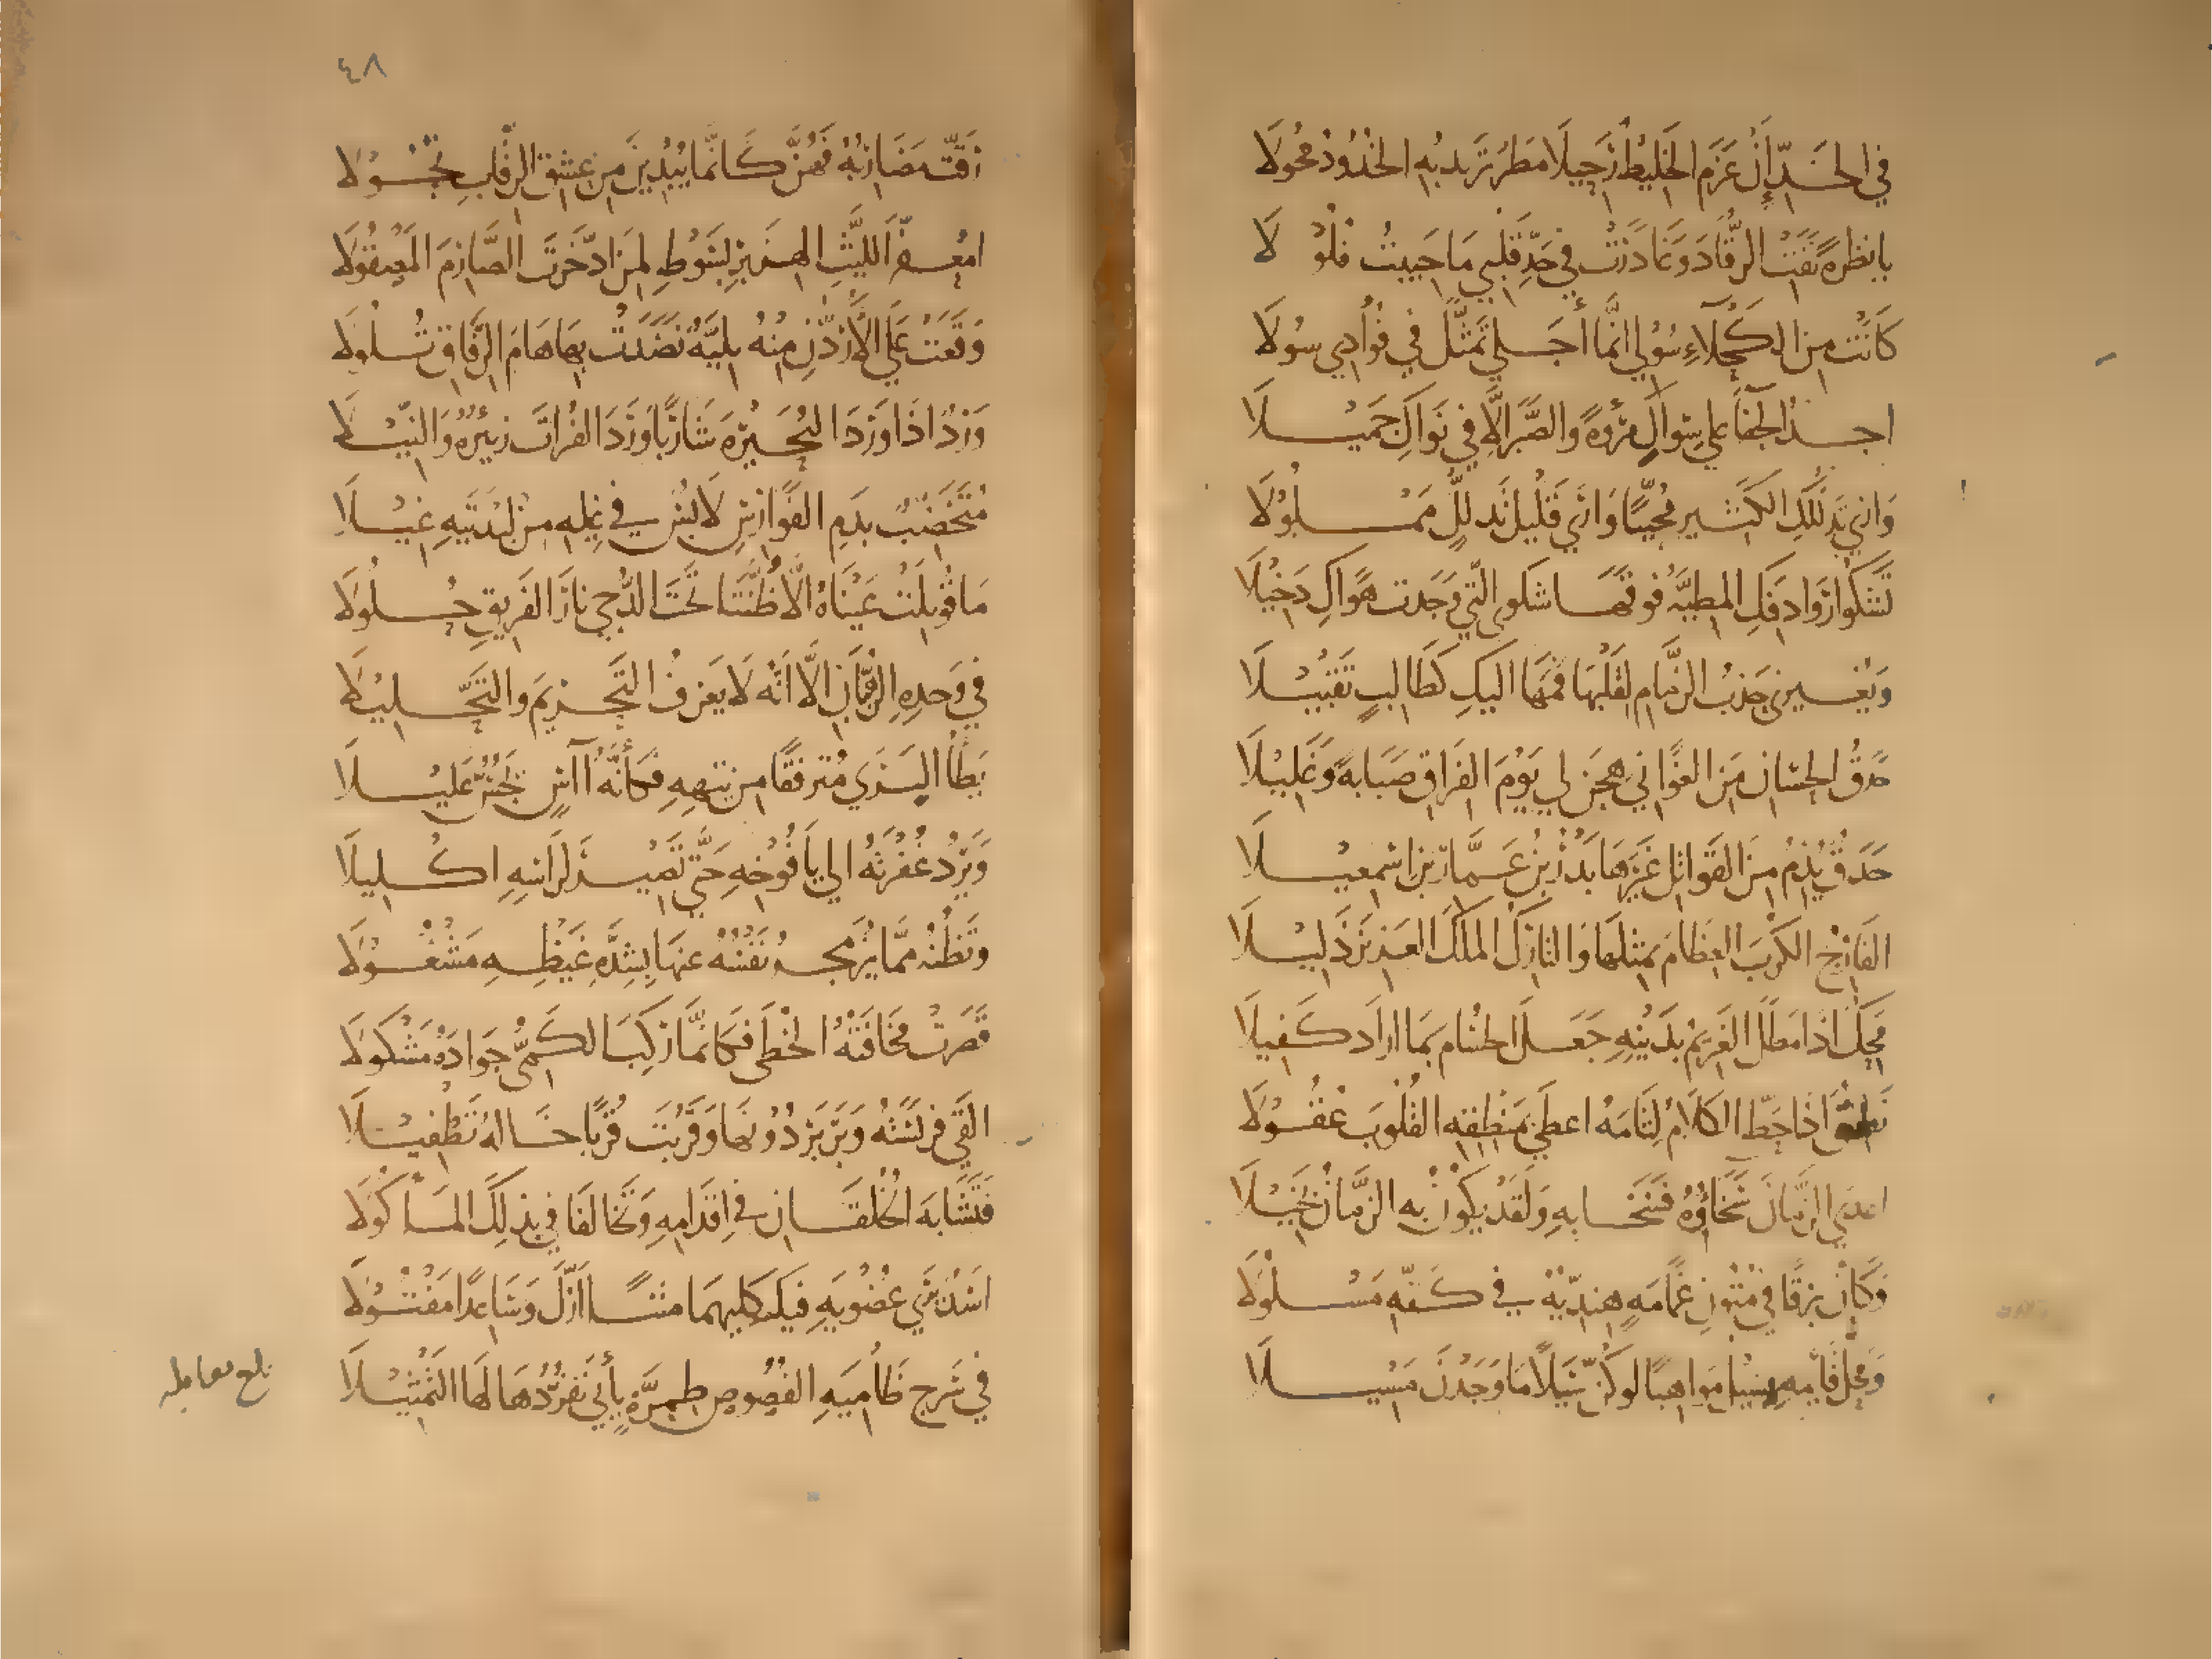 في الخَدِّ إِنْ عَزَمَ الخَلِيطُ رَحِيلَا مَطَرٌ تَزِيدُ بِهِ الخُدُودُ مُحُولَا
يا نظرةً نَفَتِ الرُّقَادَ وَغَادَرَتْ في حَدِّ قَلْبِي مَا حَيِيتُ فُلُوْلَا
كَانَتْ مِنَ الكَحْلَاءِ سُؤْلِي إِنَّمَا أَجَلِي تَمَثَّلَ فِي فُؤَادِي سُولَا
اجد الجَفَا على سِوَاكِ مُرُوءَةً والصَّبْرَ الَّا فِي نَوَاكِ جَمِيْلَا
وَارَى تَدَلُّلَكِ الكَثِيرَ مُحَبَّبًا وَارَى قَلِيلَ تَدَلُّلٍ مَمْلُوْلَا
تَشْكُو رَوَادِفَكِ المَطِيَّةَ فَوْقَهَا شكوى الَّتِي وَجَدَت هَوَاكِ دَخِيْلَا
وَيُغِيرُنِي جَذْبُ الزِّمَامِ لِقَلْبِهَا فَمَهَا اليكِ كَطَالِبٍ تَقْبِيْلَا
حَدَقُ الحِسَانِ مِنَ الغَوَانِي هِجْنَ لي يَوْمَ الفِرَاقِ صَبَابَةً وَغَلِيْلَا
حَدَقٌ يُذِمُّ مِنَ القَوَاتِلِ غَيْرَهَا بَدْرُ بْنُ عَمَّارِ بْنِ اسْمعِيْلَا
الفَارِجُ الكُرَبَ العِظَامَ بِمِثْلِهَا وَالتَّارِكُ المَلِكَ العَزِيزَ ذَلِيْلَا
مَحِكٌ اذَا مَطَلَ الغَرِيْمُ بِدَيْنِهِ جَعَلَ الحُسَامَ بِمَا ارَادَ كَفِيلَا
نَطِقٌ اذَا حَطَّ الكَلَامُ لِثَامَهُ اعطَى بِمَنْطِقِهِ القُلُوبَ عُقُوْلَا
اعدى الزَّمَانَ سَخَاؤُهُ فَسَخَا بِهِ وَلَقَدْ يَكُوْنُ بِهِ الزَّمَانُ بَخِيْلَا
وَكَأَنَّ بَرْقًا فِي مُتُونِ غَمَامَةٍ هِنْدِيّهُ في كَفِّهِ مَسْلُوْلَا
وَمَحَلُّ قَائِمِهِ يَسِيْلُ مَوَاهِبًا لو كُنَّ سَيْلاً مَا وَجَدْنَ مَسِيْلَا
٤٨
رَقَّت مَضَارِبُهُ فَهُنَّ كَأَنَّمَا يُبْدِيْنَ مِن عِشْقِ الرِّقَابِ نُحُوْلَا
امُعَفِّرَ اللَّيْثِ الهِزَبْرِ بِسَوْطِهِ لِمَنِ ادَّخَرْتَ الصَّارِمَ المَصْقُوْلَا
وَقَعَتْ عَلَى الأُرْدُنِّ مِنْهُ بَلِيَّةٌ نُضِدَتْ بِهَا هَامُ الرِّفَاقِ تُلُوْلَا
وَرْدٌ اذَا وَرَدَ البُحَيْرَةَ شَارِبًا وَرَدَ الفُرَاتَ زَئِيْرُهُ وَالنِّيْلَا
مُتَخَضِّبٌ بِدَمِ الفَوَارِسِ لَابِسٌ في غِيلِهِ مِنْ لِبْدَتَيْهِ غِيْلَا
مَا قُوبِلَتْ عَيْنَاهُ الَّا ظُنَّتَا تَحْتَ الدُّجَى نَارَ الفَرِيقِ حُلُوْلَا
فِي وَحْدَةِ الرُّهْبَانِ الَّا انَّه لَا يَعرِفُ التَّحْرِيمَ وَالتَّحْلِيْلَا
يَطَأُ الثَّرَى مُتَرَفِّقًا مِن تِيهِهِ فَكَأَنَّهُ آسٍ يَجُسُّ عَلِيْلَا
وَيَرُدُّ غُفْرَتَهُ الى يَافُوْخِهِ حَتَّى تَصِيْرَ لِرَاسِهِ اكْلِيلَا
وَتَظُنُّهُ مِمَّا يُزَمْجِرُ نَفْسُهُ عنهَا بِشِدَّةِ غَيْظِهِ مَشْغُوْلَا
قَصَرَتْ مَخَافَتُهُ الخُطَى فَكَأَنَّمَا رَكِبَ الكَمِيُّ جَوَادَهُ مَشْكُولَا
القَى فَرِيسَتَهُ وَبَرْبَرَ دُوْنَهَا وَقَرُبْتَ قُرْبًا خَالَهُ تَطْفِيْلَا
فَتَشَابَهَ الخُلُقَانِ في اقْدَامِهِ وَتَخَالَفَا فِي بَذْلِكَ المَأْكُوْلَا
اسَدٌ يَرَى عُضْوَيْهِ فِيكَ كِلَيْهِمَا مَتْنًا ازَلَّ وَسَاعِدًا مَفْتُوْلَا
فِي سَرْجِ ظَامِئَةِ الفُصُوصِ طِمِرَّةٍ يَأْبَى تَفَرُّدُهَا لَهَا التَّمْثِيْلَا
بلغ مقابلة